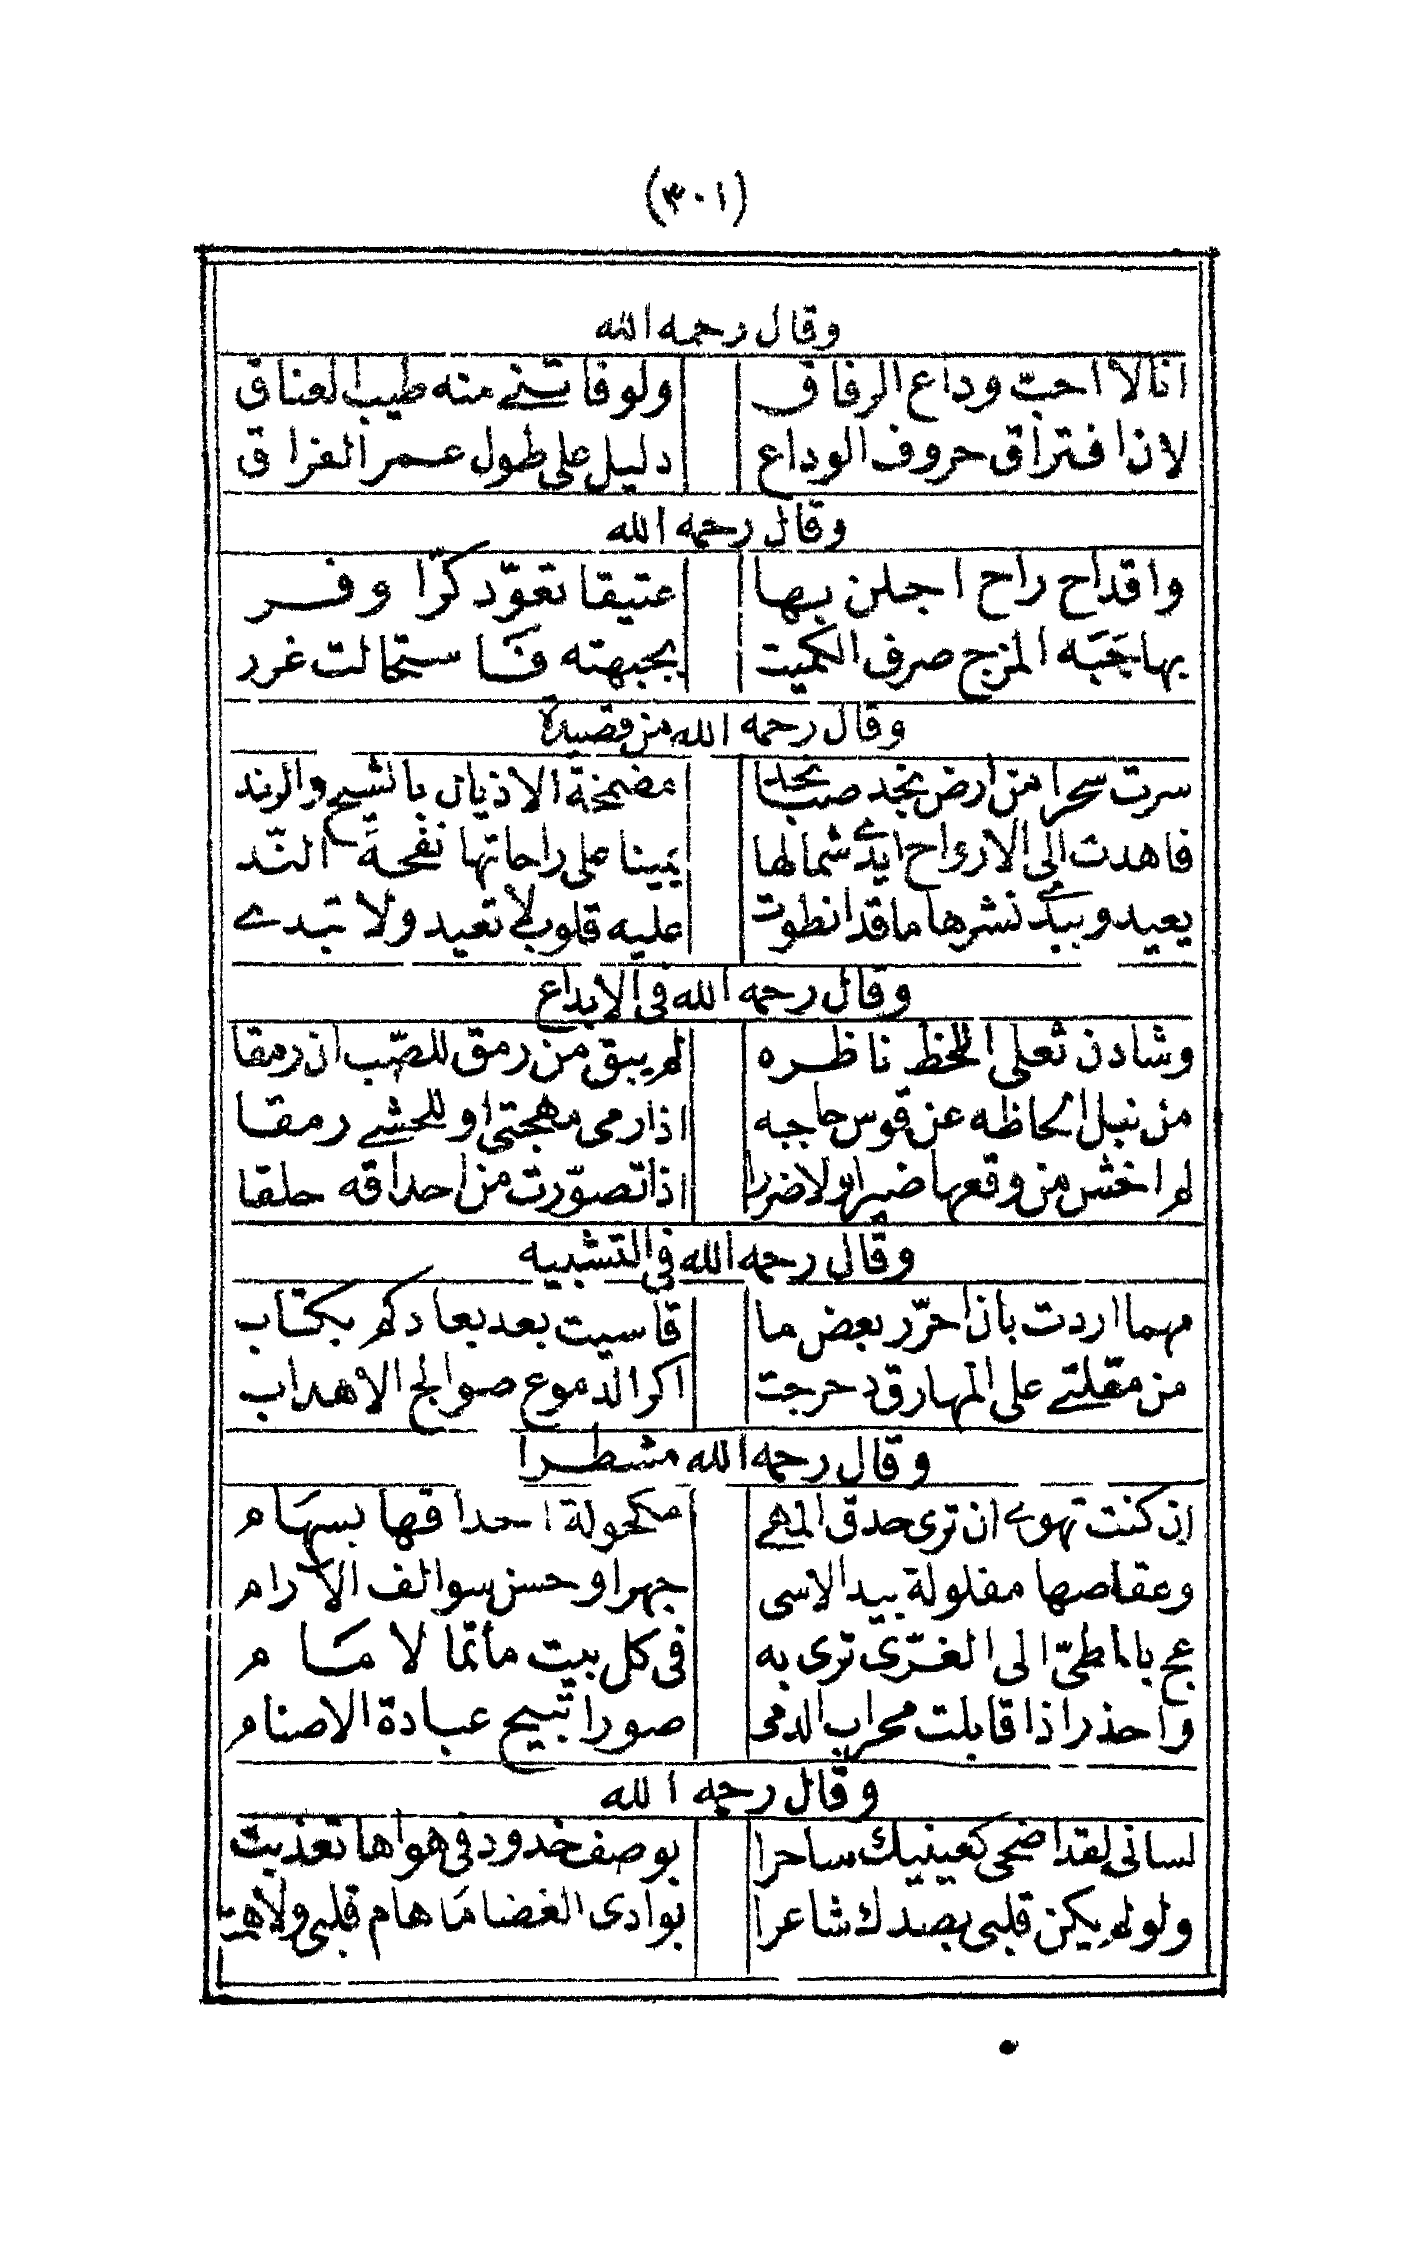 (٣٠١)
وقال رحمه الله
انا لا احبّ وداع الرفاق ولو فاتنے منه طيب العناق
لان افتراق حروف الوداع دليل على طول عمر الفراق
وقال رحمه الله
واقداح راح اجلن بها عتيقا تعوّد كرّا وفر
بها جَبَه المزج صرف الكميت بجبهته فَاستحالت غرر
وقال رحمه الله من قصيدة
سرت سحرا من ارض نجد صبا نجد مضمخة الاذيال بالشيح والرند
فاهدت الى الارواح ايدے شمالها يمينا على راحاتها نفحة النّد
يعيد ويبدے نشرها ما قد انطوت عليه قلوب لا تعيد ولا تبدے
وقال رحمه الله فى الابداع
وشادن ثعلى اللحظ ناظره لم يبق من رمق للصّب ان رمقا
من نبل الحاظه عن قوس حاجبه اذا رمى مهجتى او للحشے رمقا
لم اخش من وقعها ضيرا ولا ضررا اذا تصوّرت من احداقه حلقا
وقال رحمه الله فى التشبيه
مهما اردت بان احرّر بعض ما قاسيت بعد بعادكم بكتاب
من مقلتے على المهارق دحرجت اكر الدموع صوالج الاهداب
وقال رحمه الله مشطرا
ان كنت تهوے ان ترى حدق المهے مكحولة احداقها بسهَام
وعقاصها مفلولة بيد الاسى جهرا وحسن سوالف الارام
عج بالمطىّ الى الغرّى ترى به فى كل بيت مأتما لا مَام
واحذرا اذا قابلت محراب الدمى صورا تبيح عبادة الاصنام
وقال رحمه الله
لسانى لقد اضحى كعينيك ساحرا بوصف خدود فى هواها تعذبت
ولو لم يكن قلبى بصدك شاعرا بوادى الغضا مَا هام قلبى ولا هت